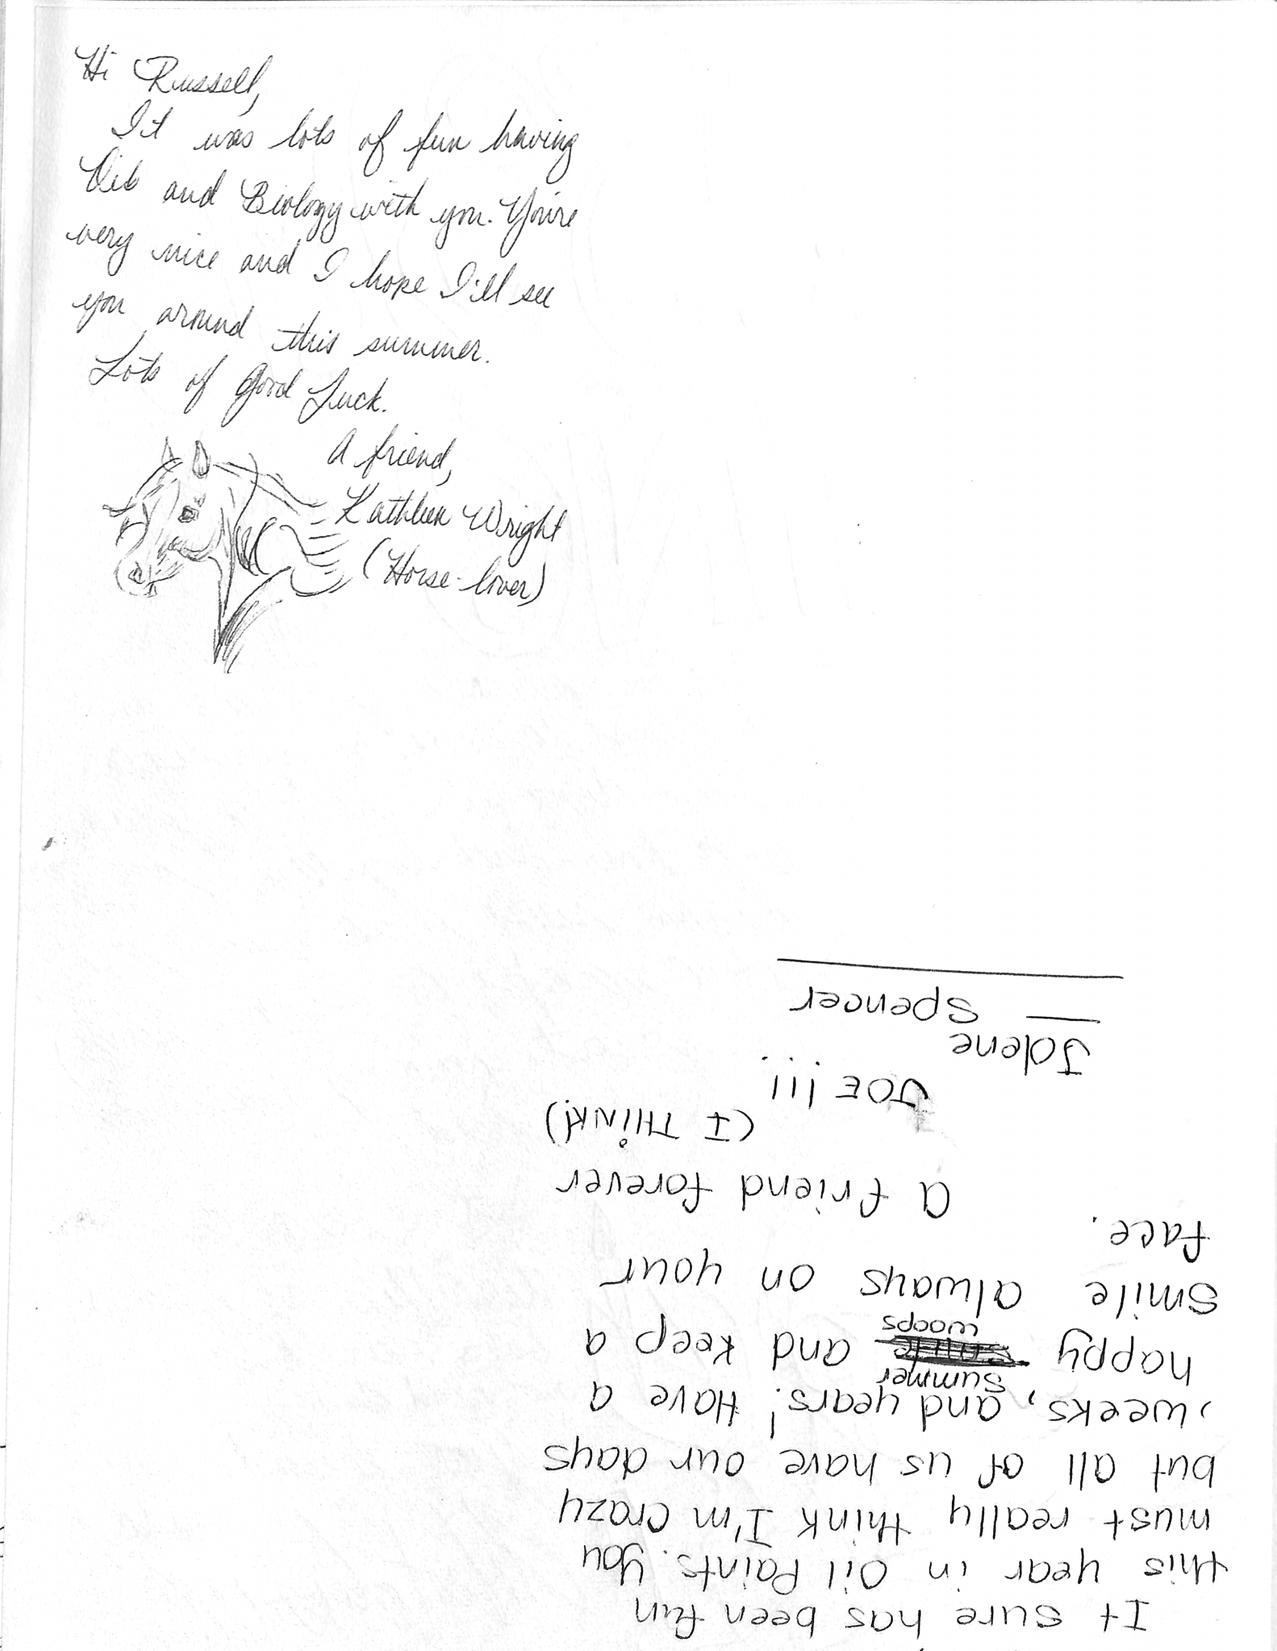 Hi Russell,
It was lots of fun having
Oil and Biology with you. You're
very nice and I hope I'll see
you around this summer.
Lots of Good Luck.
A friend,
Kathleen Wright
(Horse-lover)
It sure has been fun
this year in Oil Paints. You
must really think I'm crazy
but all of us have our days
, weeks, and years! Have a
summer
happy and keep a
woops
smile always on your
face.
a friend forever
(I THiNK!)
JOE!!!
Jolene
Spencer